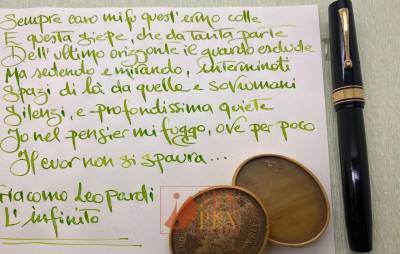 Sempre caro mi fu quest'ermo colle
E questa siepe, che da tanta parte
Dell'ultimo orizzonte il guardo esclude
Ma sedendo e mirando, interminati
Spazi di là da quella e sovrumani
Silenzi, e profondissima quiete
Io nel pensier mi fuggo, ove per poco
Il cuor non si spaura...
Giacomo Leopardi
L'infinito